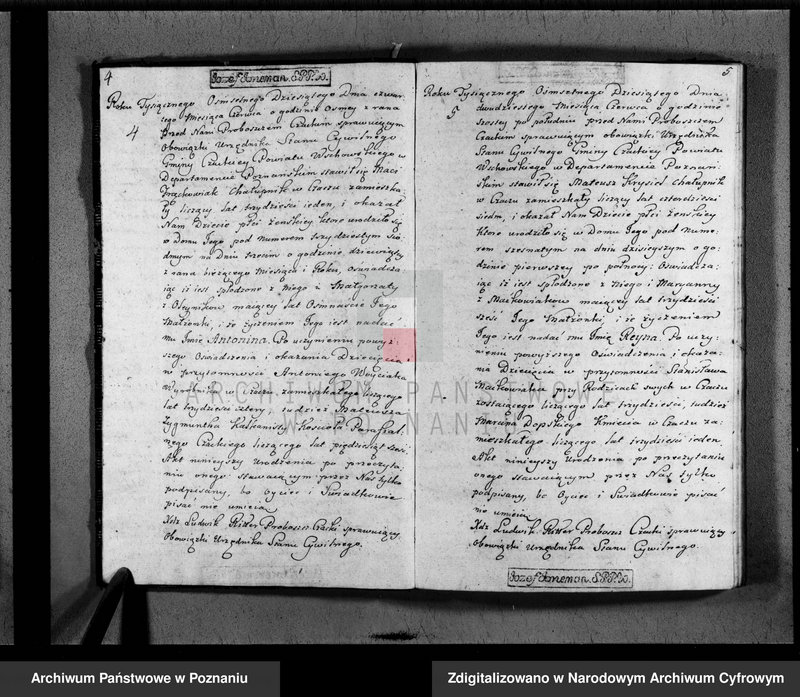 4
Jozef Jneman. S.P.P.W.
Roku Tysiącznego Osmsetnego Dziesiątego Dnia czwar
tego Miesiąca Czerwca o godzinie Osmey z rana
4
przed Nami Proboszczem Czackim sprawuiącym
Obowiązki Urzędnika Stanu Cywilnego
Gminy Czackiey Powiatu Wschowskiego w
Departamencie Poznanskim stawił się Maci
Frąckowiak Chałupnik w Czaczu zamieszka
ły liczący lat trzydzieści ieden, i okazał
Nam Dziecie płci żenskiey, ktore urodziło się
w Domu Jego pod numerem trzydziestym sió
dmym na Dniu trzecim o godzinie dziewiątey
z rana bieżącego Miesiąca i Roku, oswiadcza
iąc iż iest spłodzone z Niego i Małgorzaty
z Oleynikow maiącey lat Osmnaście Jego
Małżonki, i że życzeniem Jego iest nadać
mu Imie Antonina. Po uczynieniu powyż
szego Oswiadczenia i okazania Dziecięcia
w przytomności Antoniego Woyciaka
Wyrobnika w Czaczu zamieszkałego liczącego
lat trzydzieści cztery, tudzież Mateusza
Zygmuntha Kalkanisty Kościoła Parafial
nego Czackiego liczącego lat pięćdziesiąt sześć
Akt ninieyszy Urodzenia po przeczyta
niu onego stawaiącym przez Nas tylko
podpisany, bo Oyciec i Swiadkowie
pisać nie umieią
Xdz Ludwik Ritter Proboszcz Czacki sprawuiący
Obowiązki Urzędnika Stanu Cywilnego.
5
Roku Tysiącznego Osmsetnego Dziesiątego Dnia
5
dwudziestego Miesiąca Czerwca o godzinie
szostey po południu przed Nami Proboszczem
Czackim sprawuiącym obowiązki Urzędnika
Stanu Cywilnego Gminy Czackiey Powiatu
Wschowskiego w Departamencie Poznan
skim stawił się Mateusz Krysiol Chałupnik
w Czaczu zamieszkały liczący lat czterdzieści
siedm, i okazał Nam Dziecie płci żenskiey
ktore urodziło się w Domu Jego pod nume
rem szesnatym na dniu dzisieyszym o go
dzinie pierwszey po połnocy: Oswiadcza
iąc iż iest spłodzone z Niego i Maryanny
z Maćkowiakow maiącey lat trzydzieści
sześć Jego Małżonki: i że życzeniem
Jego iest nadać mu Imię Reyna. Po uczy
nieniu powyższego Oswiadczenia i okaza
nia Dziecięcia w przytomności Stanisława
Maćkowiaka przy Rodzicach swych w Czaczu
zostaiącego liczącego lat trzydzieści, tudzież
Marcina Dopskiego Kmiecia w Czaczu za
mieszkałego liczącego lat trzydzieści ieden.
Akt ninieyszy Urodzenia po przeczytaniu
onego stawaiącym przez Nas tylko
podpisany, bo Oyciec i Swiadkowie pisać
nie umieią
Xdz Ludwik Ritter Proboszcz Czacki sprawuiący
obowiązki Urzędnika Stanu Cywilnego.
Jozef Jneman. S.P.P.W.
ARCHIWUM PAŃSTWOWE
W POZNANIU
Archiwum Państwowe w Poznaniu
Zdigitalizowano w Narodowym Archiwum Cyfrowym